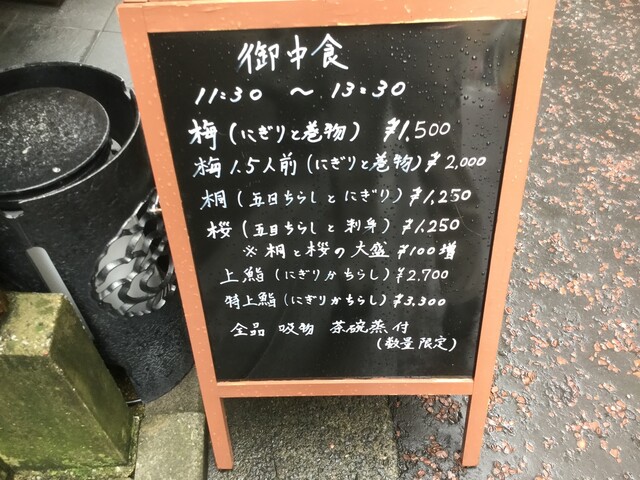 御中食
11:30 ～ 13:30
梅(にぎりと巻物) ¥1,500
梅1.5人前(にぎりと巻物)¥2,000
桐(五目ちらしとにぎり)¥1,250
桜(五目ちらしと刺身)¥1,250
※桐と桜の大盛¥100増
上鮨(にぎりかちらし)¥2,700
特上鮨(にぎりかちらし)¥3,300
全品 吸物 茶碗蒸付
(数量限定)